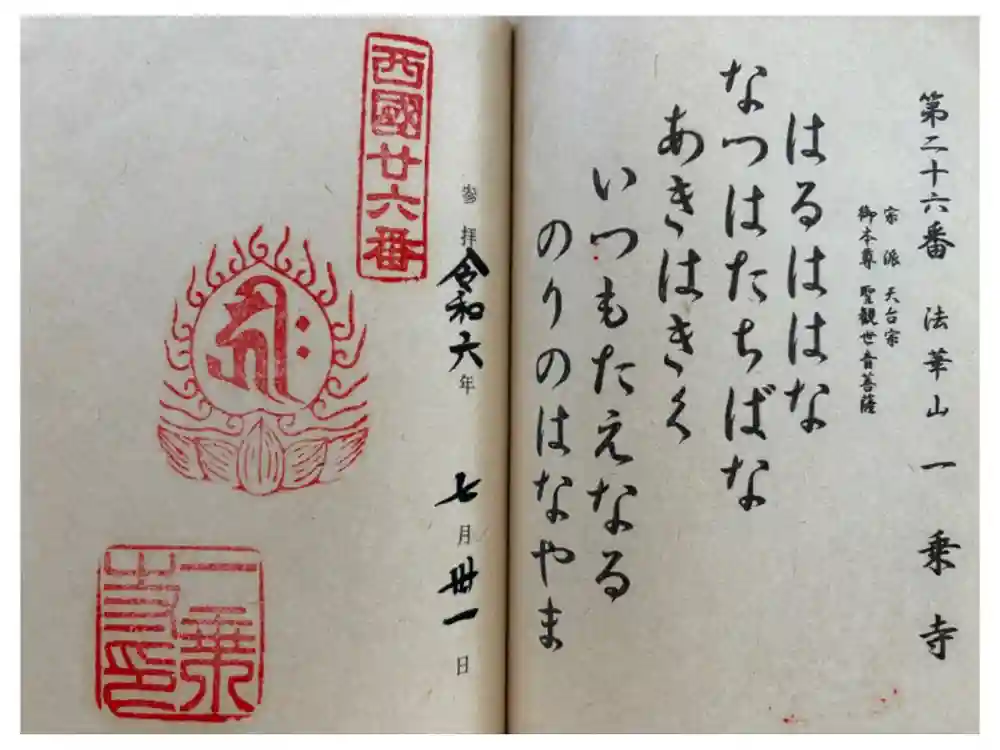 第二十六番 法華山 一乗寺
宗派 天台宗
御本尊 聖観世音菩薩
はるははな
なつはたちばな
あきはきく
いつもたえなる
のりのはなやま
西國廿六番
参拝令和六年 七月卅一日
一乗寺印